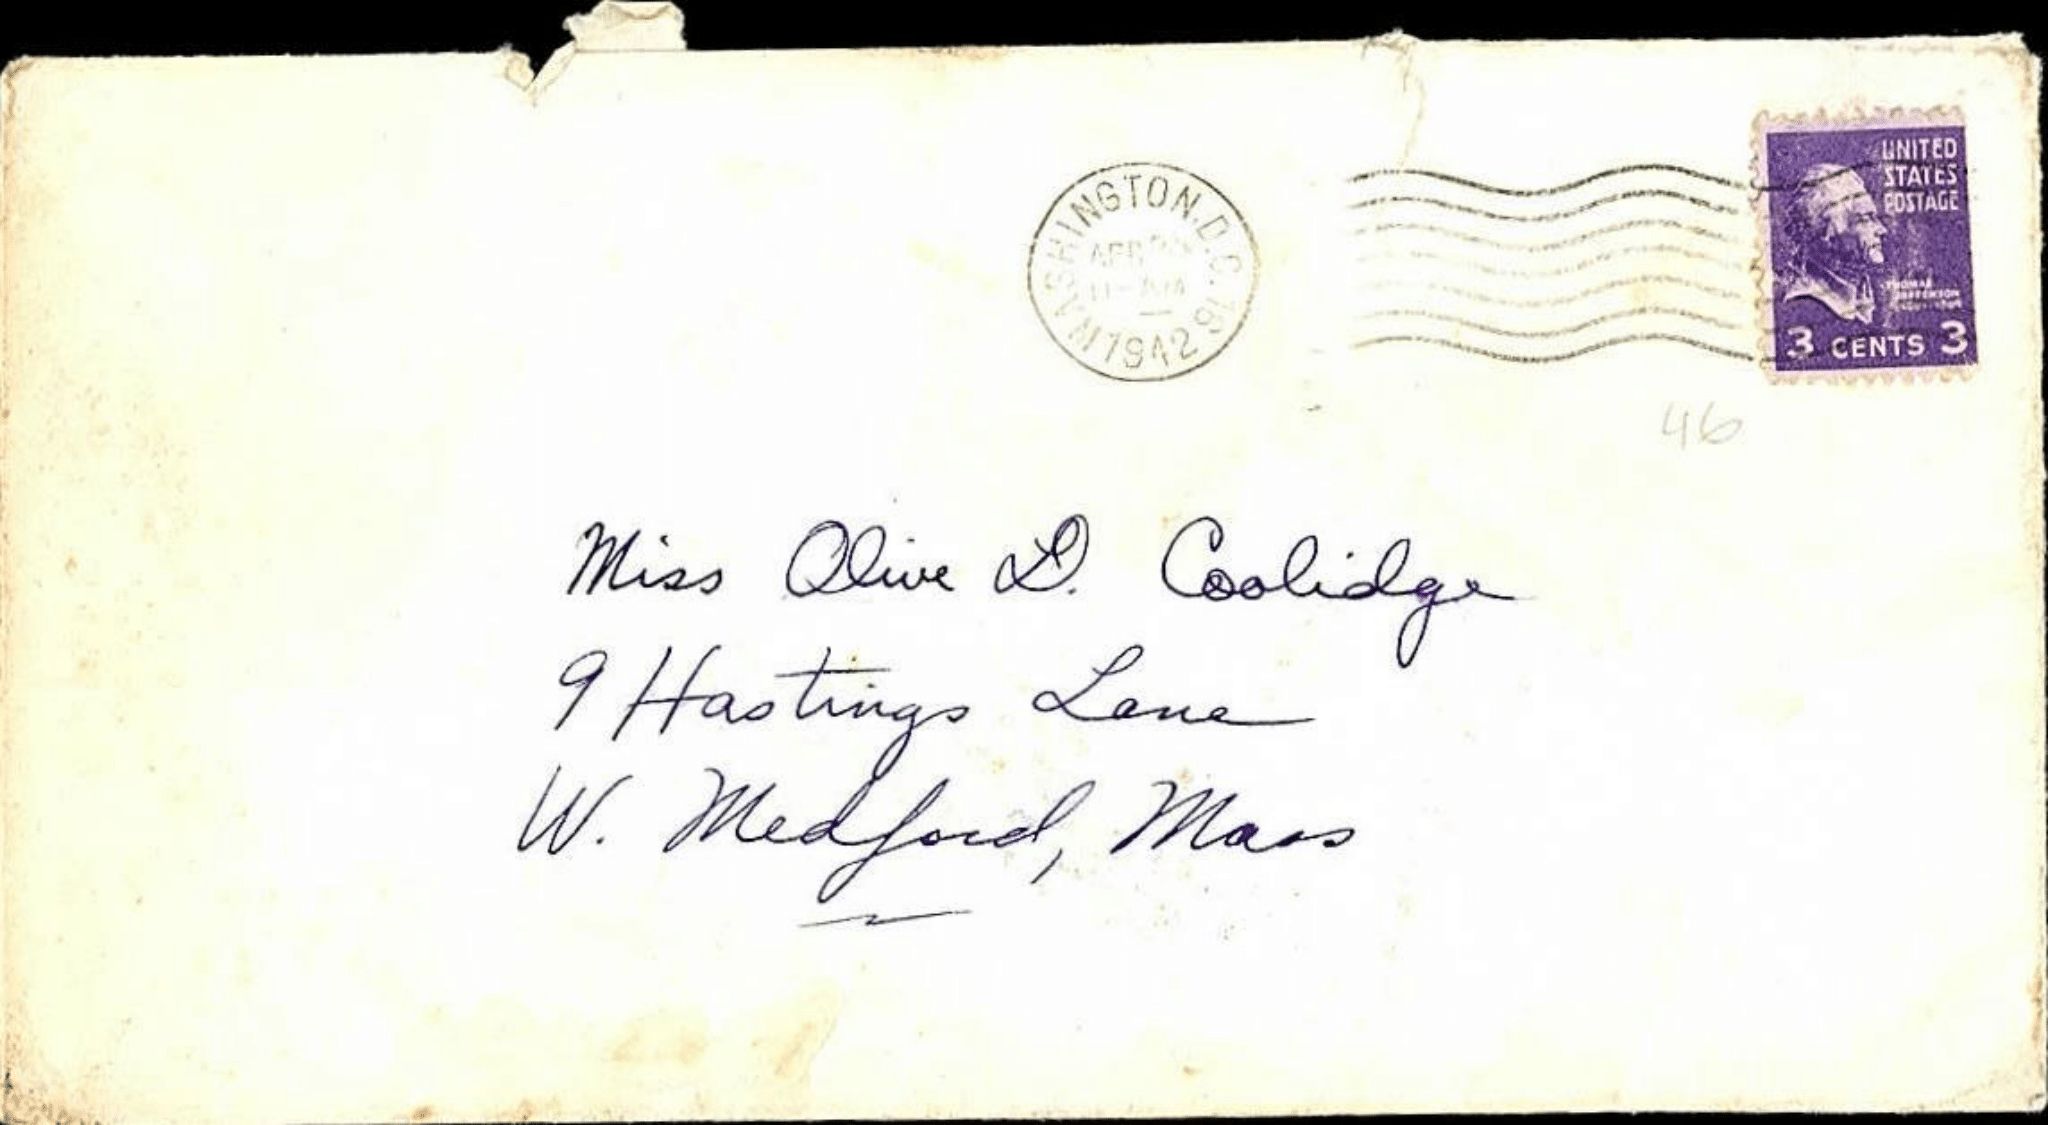 WASHINGTON, D.C. 16
APR
11 - AM
1942
UNITED
STATES
POSTAGE
THOMAS
JEFFERSON
3 CENTS 3
46
Miss Olive D. Coolidge
9 Hastings Lane
W. Medford, Mass